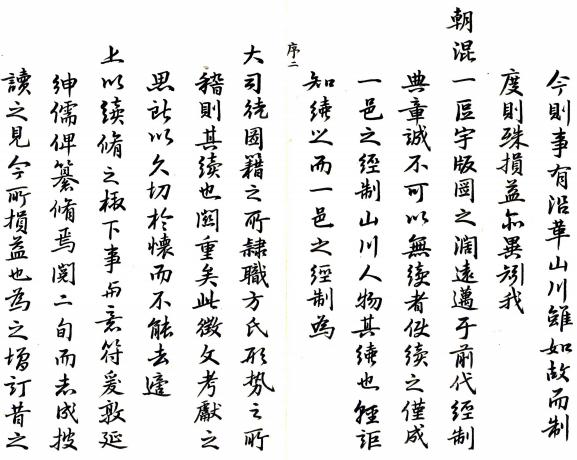 今則事有沿革山川雖如故而制
度則殊損益亦異矧我
朝混一區宇版圖之濶遠邁于前代經制
典章誠不可以無續者但續之僅成
一邑之經制山川人物其續也輕詎
知續之而一邑之經制爲
序二
大司徒圖籍之所隸職方氏形勢之所
稽則其續也關重矣此徵文考獻之
思所以久切於懷而不能去適
上以續脩之檄下事與意符爰敦延
紳儒俾纂脩焉閱二旬而志成披
讀之見今所損益也爲之增訂昔之